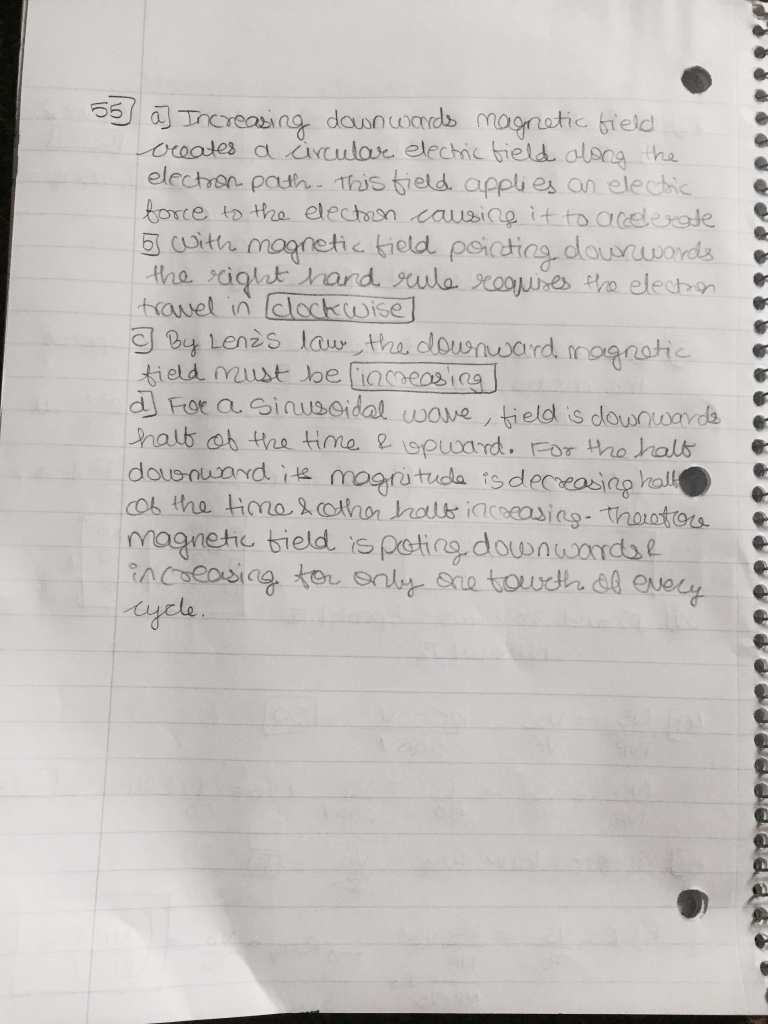 55] a] Increasing downwards magnetic field
creates a circular electric field along the
electron path. This field applies an electric
force to the electron causing it to accelerate
b] With magnetic field pointing downwards
the right hand rule requires the electron
travel in clockwise
c] By Lenz's law, the downward magnetic
field must be increasing
d] For a sinusoidal wave, field is downwards
half of the time & upward. For the half
downward its magnitude is decreasing half
of the time & other half increasing. Therefore
magnetic field is poting downwards &
increasing for only one fourth of every
cycle.